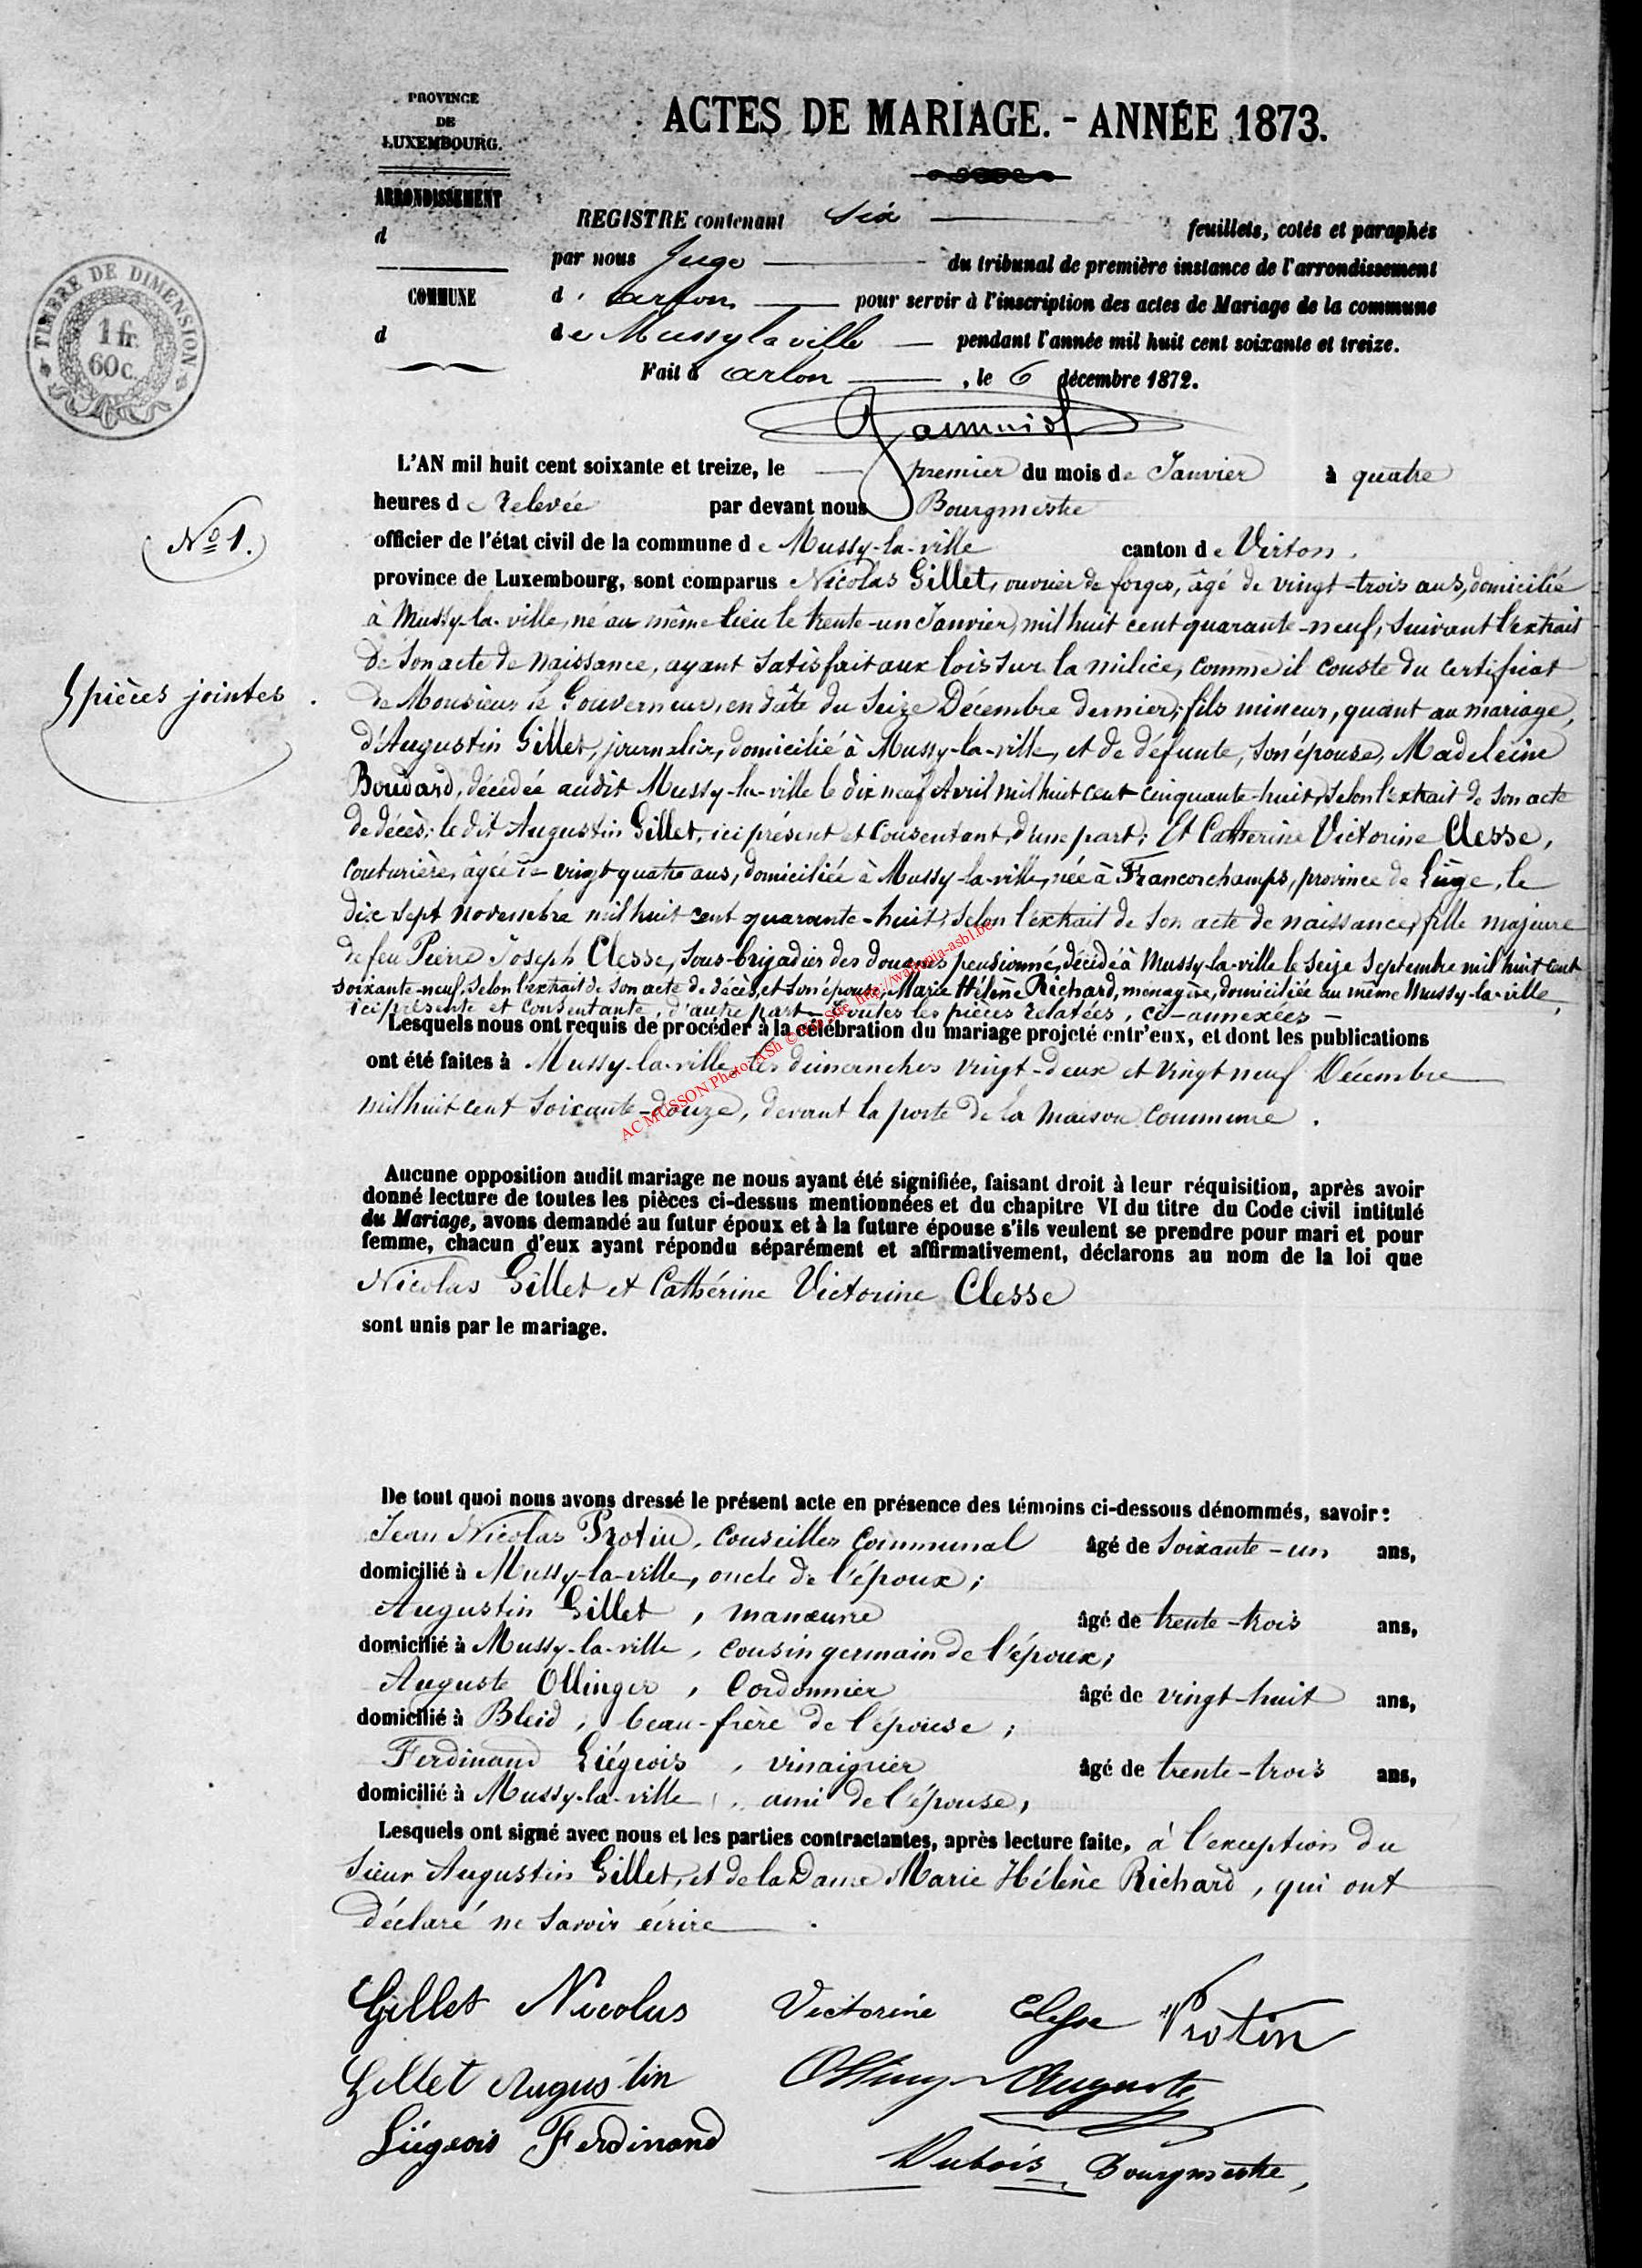 PROVINCE
DE
LUXEMBOURG.
ACTES DE MARIAGE. - ANNÉE 1873.
ARRONDISSEMENT
d
COMMUNE
d
TIMBRE DE DIMENSION
1 fr.
60 c.
REGISTRE contenant six feuillets, cotés et paraphés
par nous Juge du tribunal de première instance de l'arrondissement
d'arlon pour servir à l'inscription des actes de Mariage de la commune
de Mussy la ville pendant l'année mil huit cent soixante et treize.
Fait à arlon, le 6 décembre 1872.
L'AN mil huit cent soixante et treize, le premier du mois de Janvier à quatre
heures de relevée par devant nous Bourgmestre
No 1.
officier de l'état civil de la commune de Mussy-la-ville canton de Virton.
province de Luxembourg, sont comparus Nicolas Gillet, ouvrier de forges, âgé de vingt-trois ans, domicilié
à Mussy-la-ville, né au même lieu le trente-un Janvier, mil huit cent quarante-neuf, suivant l'extrait
de son acte de naissance, ayant satisfait aux lois sur la milice, comme il conste du certificat
5 pièces jointes.
de Monsieur le Gouverneur, en dâte du seize Décembre dernier; fils mineur, quant au mariage,
d'Augustin Gillet, journalier, domicilié à Mussy-la-ville, et de défunte, son épouse, Madeleine
Boudard, décédée audit Mussy-la-ville le dix neuf Avril mil huit cent cinquante-huit, selon l'extrait de son acte
de décès; le dit Augustin Gillet, ici présent et consentant, d'une part; Et Catherine Victorine Clesse,
couturière, âgée de vingt-quatre ans, domiciliée à Mussy-la-ville, née à Francorchamps, province de Liège, le
dix sept novembre mil huit cent quarante-huit, selon l'extrait de son acte de naissance, fille majeure
de feu Pierre Joseph Clesse, sous-brigadier des douanes pensionné, décédé à Mussy-la-ville le seize septembre mil huit cent
soixante-neuf, selon l'extrait de son acte de décès, et son épouse, Marie Hélène Richard, ménagère, domiciliée au même Mussy-la-ville,
ici présente et consentante, d'autre part. Toutes les pièces relatées, ci-annexées -
AC MUSSON Photo: ASh © Via Site http://wallonia-asbl.be
Lesquels nous ont requis de procéder à la célébration du mariage projeté entr'eux, et dont les publications
ont été faites à Mussy-la-ville, les dimanches vingt-deux et vingt neuf Décembre
mil huit cent soixante-douze, devant la porte de la maison commune.
Aucune opposition audit mariage ne nous ayant été signifiée, faisant droit à leur réquisition, après avoir
donné lecture de toutes les pièces ci-dessus mentionnées et du chapitre VI du titre du Code civil intitulé
du Mariage, avons demandé au futur époux et à la future épouse s'ils veulent se prendre pour mari et pour
femme, chacun d'eux ayant répondu séparément et affirmativement, déclarons au nom de la loi que
Nicolas Gillet et Cathérine Victorine Clesse
sont unis par le mariage.
De tout quoi nous avons dressé le présent acte en présence des témoins ci-dessous dénommés, savoir:
Jean Nicolas Protin, conseiller communal âgé de soixante-un ans,
domicilié à Mussy-la-ville, oncle de l'époux;
Augustin Gillet, manœuvre âgé de trente-trois ans,
domicilié à Mussy-la-ville, cousin germain de l'époux;
Auguste Ollinger, Cordonnier âgé de vingt-huit ans,
domicilié à Bleid, beau-frère de l'épouse;
Ferdinand Liégeois, vinaigrier âgé de trente-trois ans,
domicilié à Mussy-la-ville, ami de l'épouse,
Lesquels ont signé avec nous et les parties contractantes, après lecture faite, à l'exception du
sieur Augustin Gillet, et de la Dame Marie Hélène Richard, qui ont
déclaré ne savoir écrire.
Gillet Nicolas Victorine Clesse Protin
Gillet Augustin Ollinger Auguste
Liégeois Ferdinand
Dubois Bourgmestre,